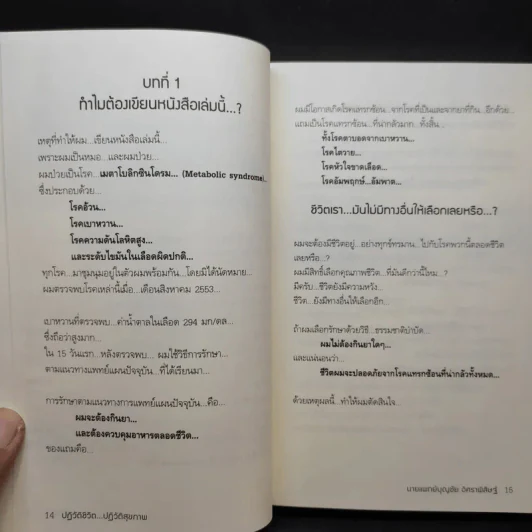 บทที่ 1
ทำไมต้องเขียนหนังสือเล่มนี้...?
เหตุที่ทำให้ผม...เขียนหนังสือเล่มนี้...
เพราะผมเป็นหมอ ...และผมป่วย...
ผมป่วยเป็นโรค... เมตาโบลิกซินโดรม... (Metabolic syndrome)...
ซึ่งประกอบด้วย...
โรคอ้วน...
โรคเบาหวาน...
โรคความดันโลหิตสูง...
และระดับไขมันในเลือดผิดปกติ...
ทุกโรค... มาชุมนุมอยู่ในตัวผมพร้อมกัน... โดยมิได้นัดหมาย...
ผมตรวจพบโรคเหล่านี้เมื่อ...เดือนสิงหาคม 2553...
เบาหวานที่ตรวจพบ... ค่าน้ำตาลในเลือด 294 มก/ดล...
ซึ่งถือว่าสูงมาก...
ใน 15 วันแรก...หลังตรวจพบ... ผมใช้วิธีการรักษา...
ตามแนวทางการแพทย์แผนปัจจุบัน...ที่ได้เรียนมา...
การรักษาตามแนวทางการแพทย์แผนปัจจุบัน...คือ...
ผมจะต้องกินยา...
และต้องควบคุมอาหารตลอดชีวิต...
ของแถมคือ...
14 ปฏิวัติชีวิต...ปฏิวัติสุขภาพ
ผมมีโอกาสเกิดโรคแทรกซ้อน...จากโรคที่เป็นและจากยาที่กิน...อีกด้วย...
แถมเป็นโรคแทรกซ้อน...ที่น่ากลัวมาก...ทั้งสิ้น...
ทั้งโรคตาบอดจากเบาหวาน...
โรคไตวาย...
โรคหัวใจขาดเลือด...
โรคอัมพฤกษ์...อัมพาต...
ชีวิตเรา...มันไม่มีทางอื่นให้เลือกเลยหรือ...?
ผมจะต้องมีชีวิตอยู่...อย่างทุกข์ทรมาน...ไปกับโรคพวกนี้ตลอดชีวิต
เลยหรือ...?
ผมมีสิทธิ์เลือกคุณภาพชีวิต...ที่มันดีกว่านี้ไหม...?
มีครับ...ชีวิตยังมีความหวัง...
ชีวิต...ยังมีทางอื่นให้เลือกอีก...
ถ้าผมเลือกรักษาด้วยวิธี...ธรรมชาติบำบัด...
ผมไม่ต้องกินยาใดๆ...
และแน่นอนว่า...
ชีวิตผมจะปลอดภัยจากโรคแทรกซ้อนที่น่ากลัวทั้งหมด...
ด้วยเหตุผลนี้...ทำให้ผมตัดสินใจ...
นายแพทย์บุญชัย อิศราพิสิษฐ์ 15